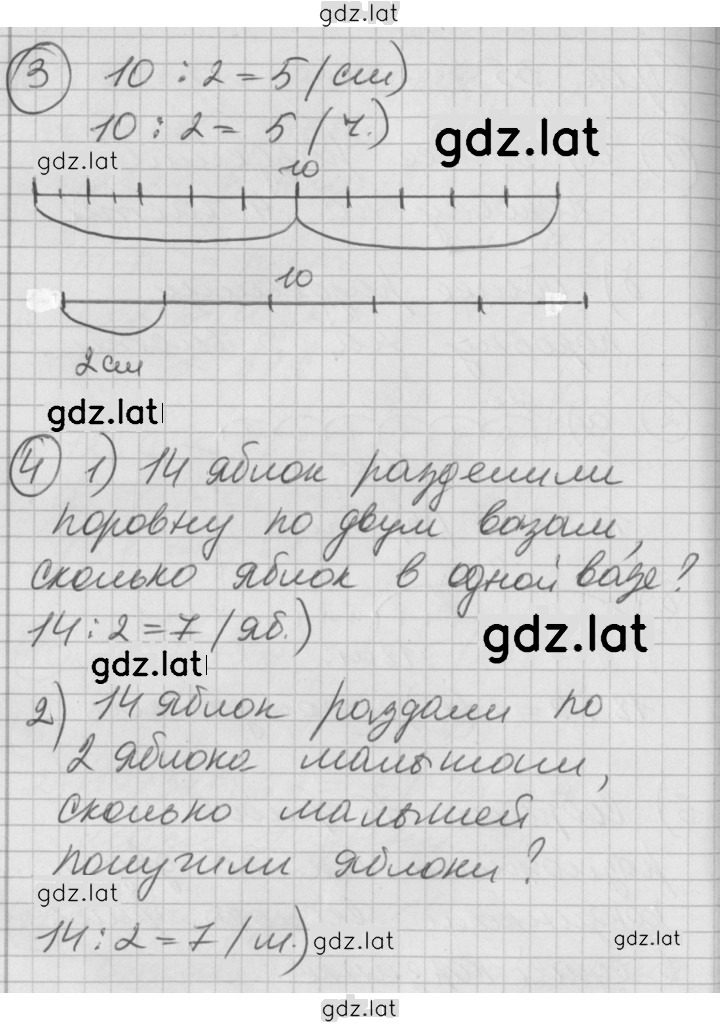 gdz.lat
3 10 : 2 = 5 (см)
10 : 2 = 5 (ч.)
gdz.lat
gdz.lat
10
10
2 см
gdz.lat
4 1) 14 яблок разделили
поровну по двум вазам,
сколько яблок в одной вазе?
14 : 2 = 7 (яб.)
gdz.lat
gdz.lat
2) 14 яблок раздали по
2 яблока малышам,
сколько малышей
получили яблоки?
gdz.lat
14 : 2 = 7 (м.)
gdz.lat
gdz.lat
gdz.lat